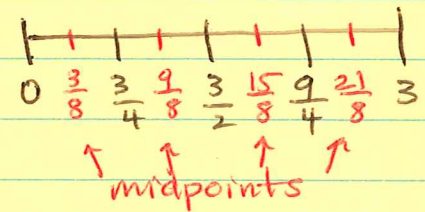 0 3/8 3/4 9/8 3/2 15/8 9/4 21/8 3
midpoints